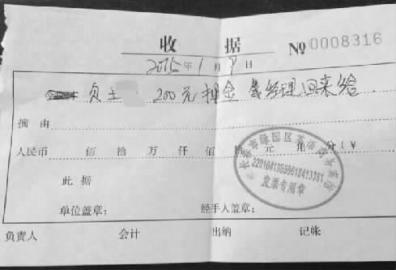 收据 №0008316
2015年1月9日
员工 200元押金 经理回来给.
摘由
人民币 佰 拾 万 仟 佰 拾 元 角 分(¥
此据
发票专用章
单位盖章: 经手人盖章:
负责人 会计 出纳 记帐